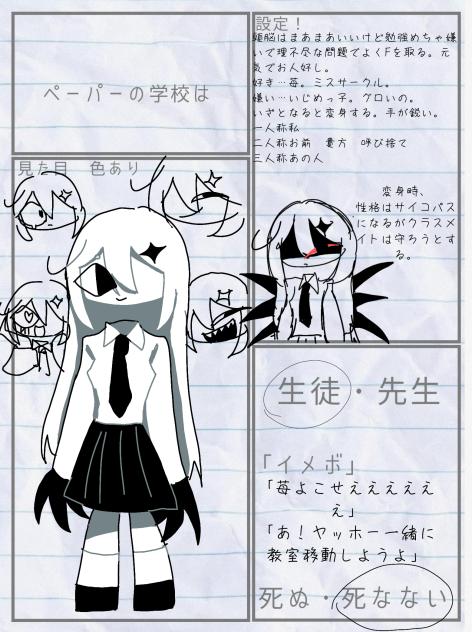 ペーパーの学校は
設定！
頭脳はまあまあいいけど勉強めちゃ嫌
いで理不尽な問題でよくFを取る。元
気でお人好し。
好き…苺。ミスサークル。
嫌い…いじめっ子。グロいの。
いざとなると変身する。手が鋭い。
一人称私
二人称お前　貴方　呼び捨て
三人称あの人
見た目　色あり
変身時、
性格はサイコパス
になるがクラスメ
イトは守ろうとす
る。
生徒・先生
「イメボ」
「苺よこせえええええ
え」
「あ！ヤッホー一緒に
教室移動しようよ」
死ぬ・死なない